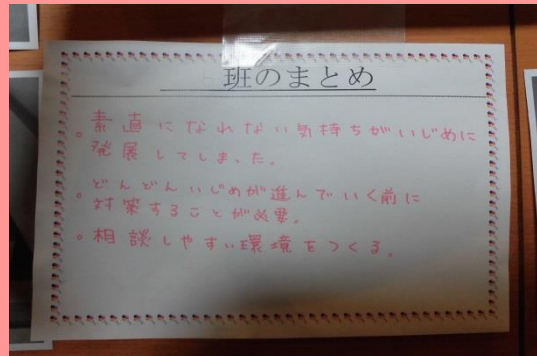 班のまとめ
。素直になれない気持ちがいじめに
発展してしまった。
。どんどんいじめが進んでいく前に
対策することが必要。
。相談しやすい環境をつくる。